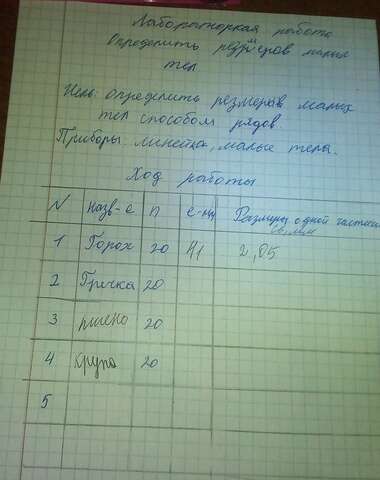 Лабораторная работа
Определить размеров малых
тел
Цель: определить резмеров малых
тел способом рядов.
Приборы: линейка, малые тела.
Ход работы
N назв-е n Размеры одной частицы
1 Горох 20 41 2,05
2 Гречка 20
3 пшено 20
4 крупа 20
5